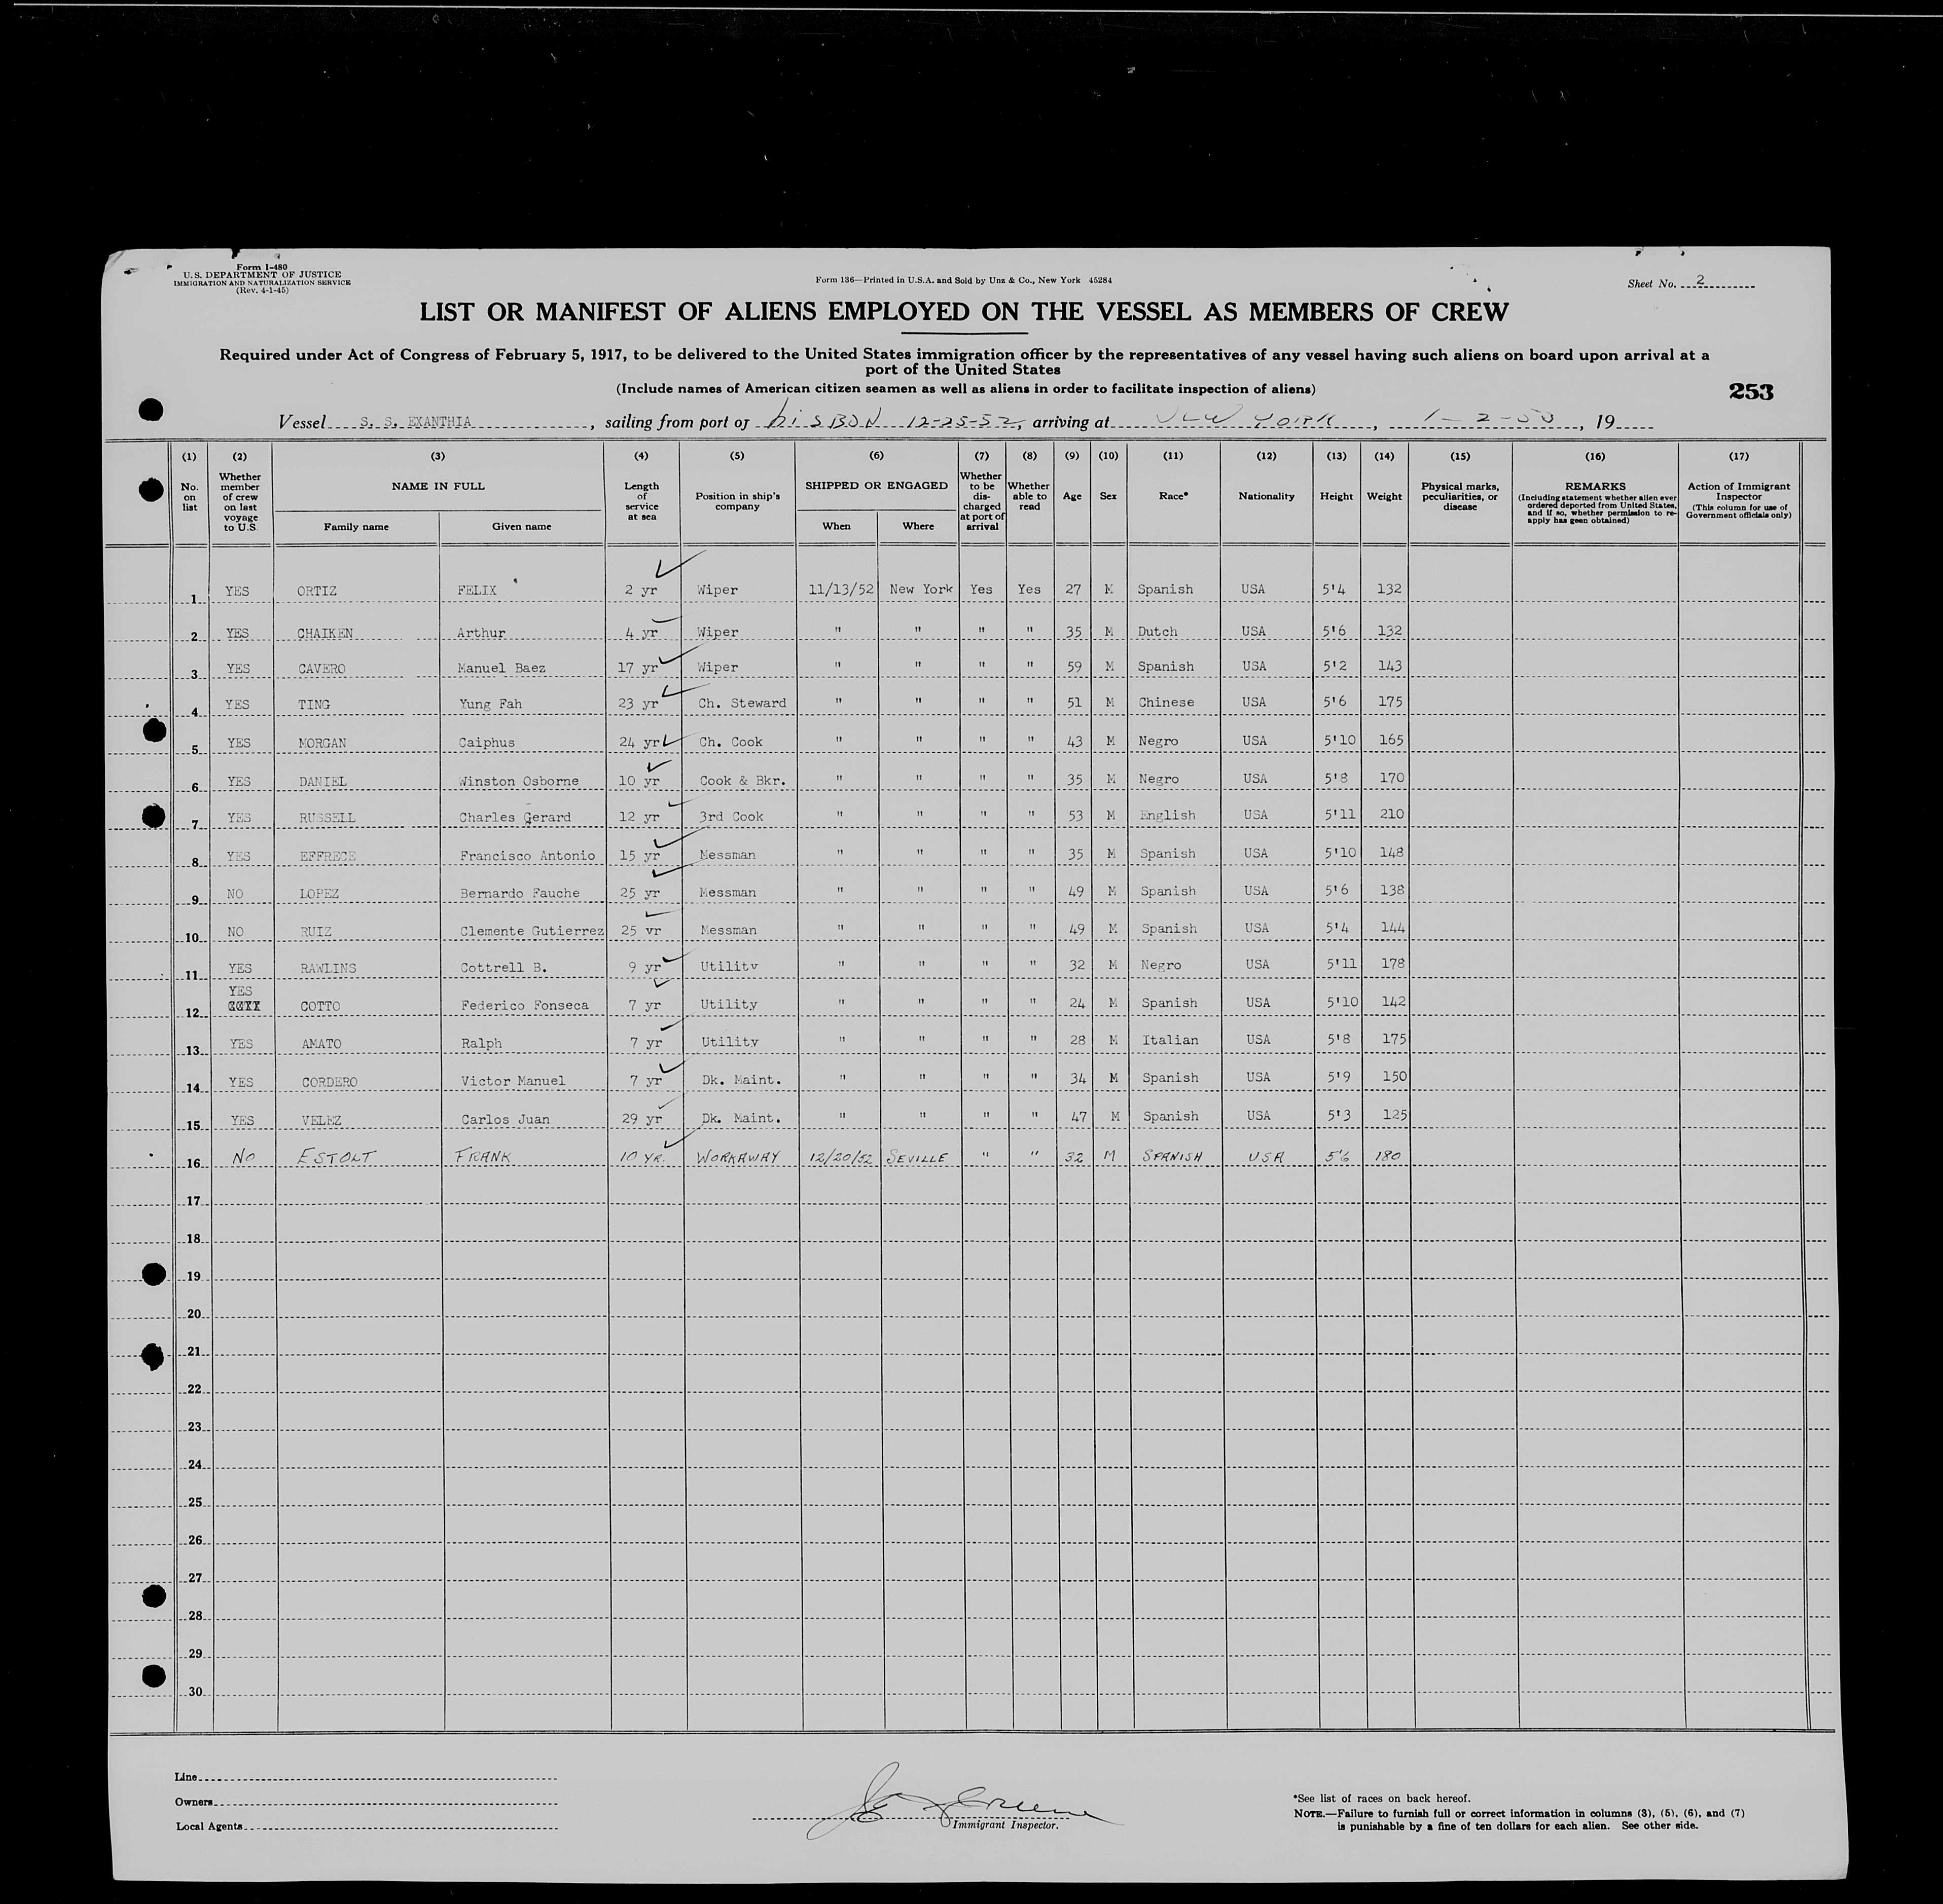 Form I-480
U. S. DEPARTMENT OF JUSTICE
IMMIGRATION AND NATURALIZATION SERVICE
(Rev. 4-1-45)
Form 136—Printed in U.S.A. and Sold by Unz & Co., New York 45284
Sheet No. 2
LIST OR MANIFEST OF ALIENS EMPLOYED ON THE VESSEL AS MEMBERS OF CREW
Required under Act of Congress of February 5, 1917, to be delivered to the United States immigration officer by the representatives of any vessel having such aliens on board upon arrival at a
port of the United States
(Include names of American citizen seamen as well as aliens in order to facilitate inspection of aliens)
253
Vessel S. S. EXANTHIA, sailing from port of LISBON 12-25-52, arriving at NEW YORK, 1-2-53, 19
(1) (2) (3) (4) (5) (6) (7) (8) (9) (10) (11) (12) (13) (14) (15) (16) (17)
No. on list
Whether member of crew on last voyage to U.S
NAME IN FULL
Family name
Given name
Length of service at sea
Position in ship's company
SHIPPED OR ENGAGED
When
Where
Whether to be dis-charged at port of arrival
Whether able to read
Age
Sex
Race*
Nationality
Height
Weight
Physical marks, peculiarities, or disease
REMARKS
(Including statement whether alien ever ordered deported from United States, and if so, whether permission to re-apply has geen obtained)
Action of Immigrant Inspector
(This column for use of Government officials only)
1 YES ORTIZ FELIX 2 yr Wiper 11/13/52 New York Yes Yes 27 M Spanish USA 5'4 132
2 YES CHAIKEN Arthur 4 yr Wiper " " " " 35 M Dutch USA 5'6 132
3 YES CAVERO Manuel Baez 17 yr Wiper " " " " 59 M Spanish USA 5'2 143
4 YES TING Yung Fah 23 yr Ch. Steward " " " " 51 M Chinese USA 5'6 175
5 YES MORGAN Caiphus 24 yr Ch. Cook " " " " 43 M Negro USA 5'10 165
6 YES DANIEL Winston Osborne 10 yr Cook & Bkr. " " " " 35 M Negro USA 5'8 170
7 YES RUSSELL Charles Gerard 12 yr 3rd Cook " " " " 53 M English USA 5'11 210
8 YES EFFRECE Francisco Antonio 15 yr Messman " " " " 35 M Spanish USA 5'10 148
9 NO LOPEZ Bernardo Fauche 25 yr Messman " " " " 49 M Spanish USA 5'6 138
10 NO RUIZ Clemente Gutierrez 25 yr Messman " " " " 49 M Spanish USA 5'4 144
11 YES RAWLINS Cottrell B. 9 yr Utility " " " " 32 M Negro USA 5'11 178
12 YES COTTO Federico Fonseca 7 yr Utility " " " " 24 M Spanish USA 5'10 142
13 YES AMATO Ralph 7 yr Utility " " " " 28 M Italian USA 5'8 175
14 YES CORDERO Victor Manuel 7 yr Dk. Maint. " " " " 34 M Spanish USA 5'9 150
15 YES VELEZ Carlos Juan 29 yr Dk. Maint. " " " " 47 M Spanish USA 5'3 125
16 NO ESTOLT FRANK 10 YR. WORKAWAY 12/20/52 SEVILLE " " 32 M SPANISH USA 5'6 180
17
18
19
20
21
22
23
24
25
26
27
28
29
30
Line
Owners
Local Agents
Immigrant Inspector.
*See list of races on back hereof.
NOTE.—Failure to furnish full or correct information in columns (3), (5), (6), and (7)
is punishable by a fine of ten dollars for each alien. See other side.